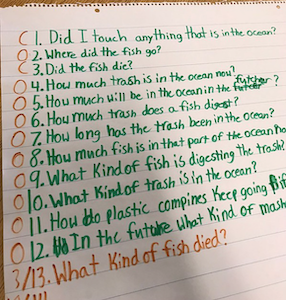 C 1. Did I touch anything that is in the ocean?
O 2. Where did the fish go?
C 3. Did the fish die?
O 4. How much trash is in the ocean now?
O 5. How much will be in the ocean in the futcher?
O 6. How much trash does a fish digest?
O 7. How long has the trash been in the ocean?
O 8. How much fish is in that part of the ocean
O 9. What Kind of fish is digesting the trash?
O 10. What Kind of trash is in the ocean?
O 11. How do plastic compines Keep going
O 12. In the future what Kind of
3/13. What Kind of fish died?